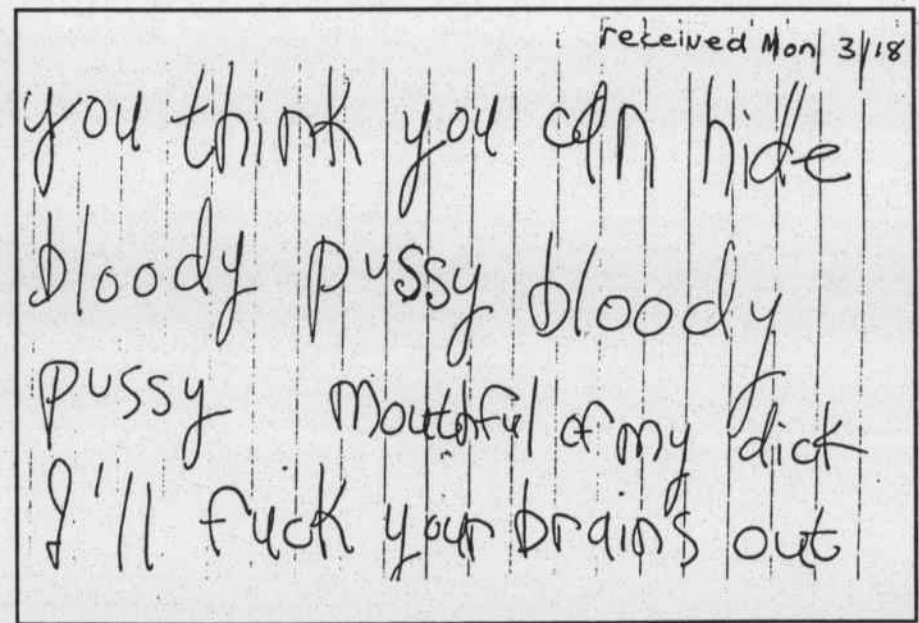 received Mon 3/18
you think you can hide
bloody pussy bloody
pussy mouthful of my dick
I'll fuck your brains out